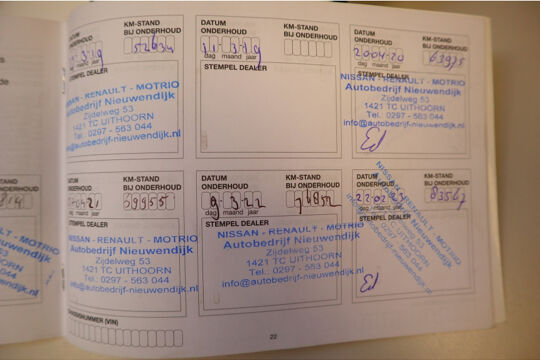 DATUM ONDERHOUD
KM-STAND BIJ ONDERHOUD
52634
dag maand jaar
STEMPEL DEALER
NISSAN - RENAULT - MOTRIO
Autobedrijf Nieuwendijk
Zijdelweg 53
1421 TC UITHOORN
Tel.: 0297 - 563 044
info@autobedrijf-nieuwendijk.nl
DATUM ONDERHOUD
KM-STAND BIJ ONDERHOUD
11 3 19
dag maand jaar
STEMPEL DEALER
DATUM ONDERHOUD
KM-STAND BIJ ONDERHOUD
2004 20
63975
dag maand jaar
STEMPEL DEALER
NISSAN - RENAULT - MOTRIO
Autobedrijf Nieuwendijk
Zijdelweg 53
1421 TC UITHOORN
Tel.: 0297 - 563 044
info@autobedrijf-nieuwendijk.nl
KM-STAND
BIJ ONDERHOUD
DATUM ONDERHOUD
KM-STAND BIJ ONDERHOUD
69955
dag maand jaar
STEMPEL DEALER
NISSAN - RENAULT - MOTRIO
Autobedrijf Nieuwendijk
Zijdelweg 53
1421 TC UITHOORN
Tel.: 0297 - 563 044
info@autobedrijf-nieuwendijk.nl
DATUM ONDERHOUD
KM-STAND BIJ ONDERHOUD
3 22
76852
dag maand jaar
STEMPEL DEALER
NISSAN - RENAULT - MOTRIO
Autobedrijf Nieuwendijk
Zijdelweg 53
1421 TC UITHOORN
Tel.: 0297 - 563 044
info@autobedrijf-nieuwendijk.nl
DATUM ONDERHOUD
KM-STAND BIJ ONDERHOUD
83567
dag maand jaar
STEMPEL DEALER
NISSAN - RENAULT - MOTRIO
Autobedrijf Nieuwendijk
Zijdelweg 53
1421 TC UITHOORN
Tel.: 0297 - 563 044
info@autobedrijf-nieuwendijk.nl
(VIN)
22